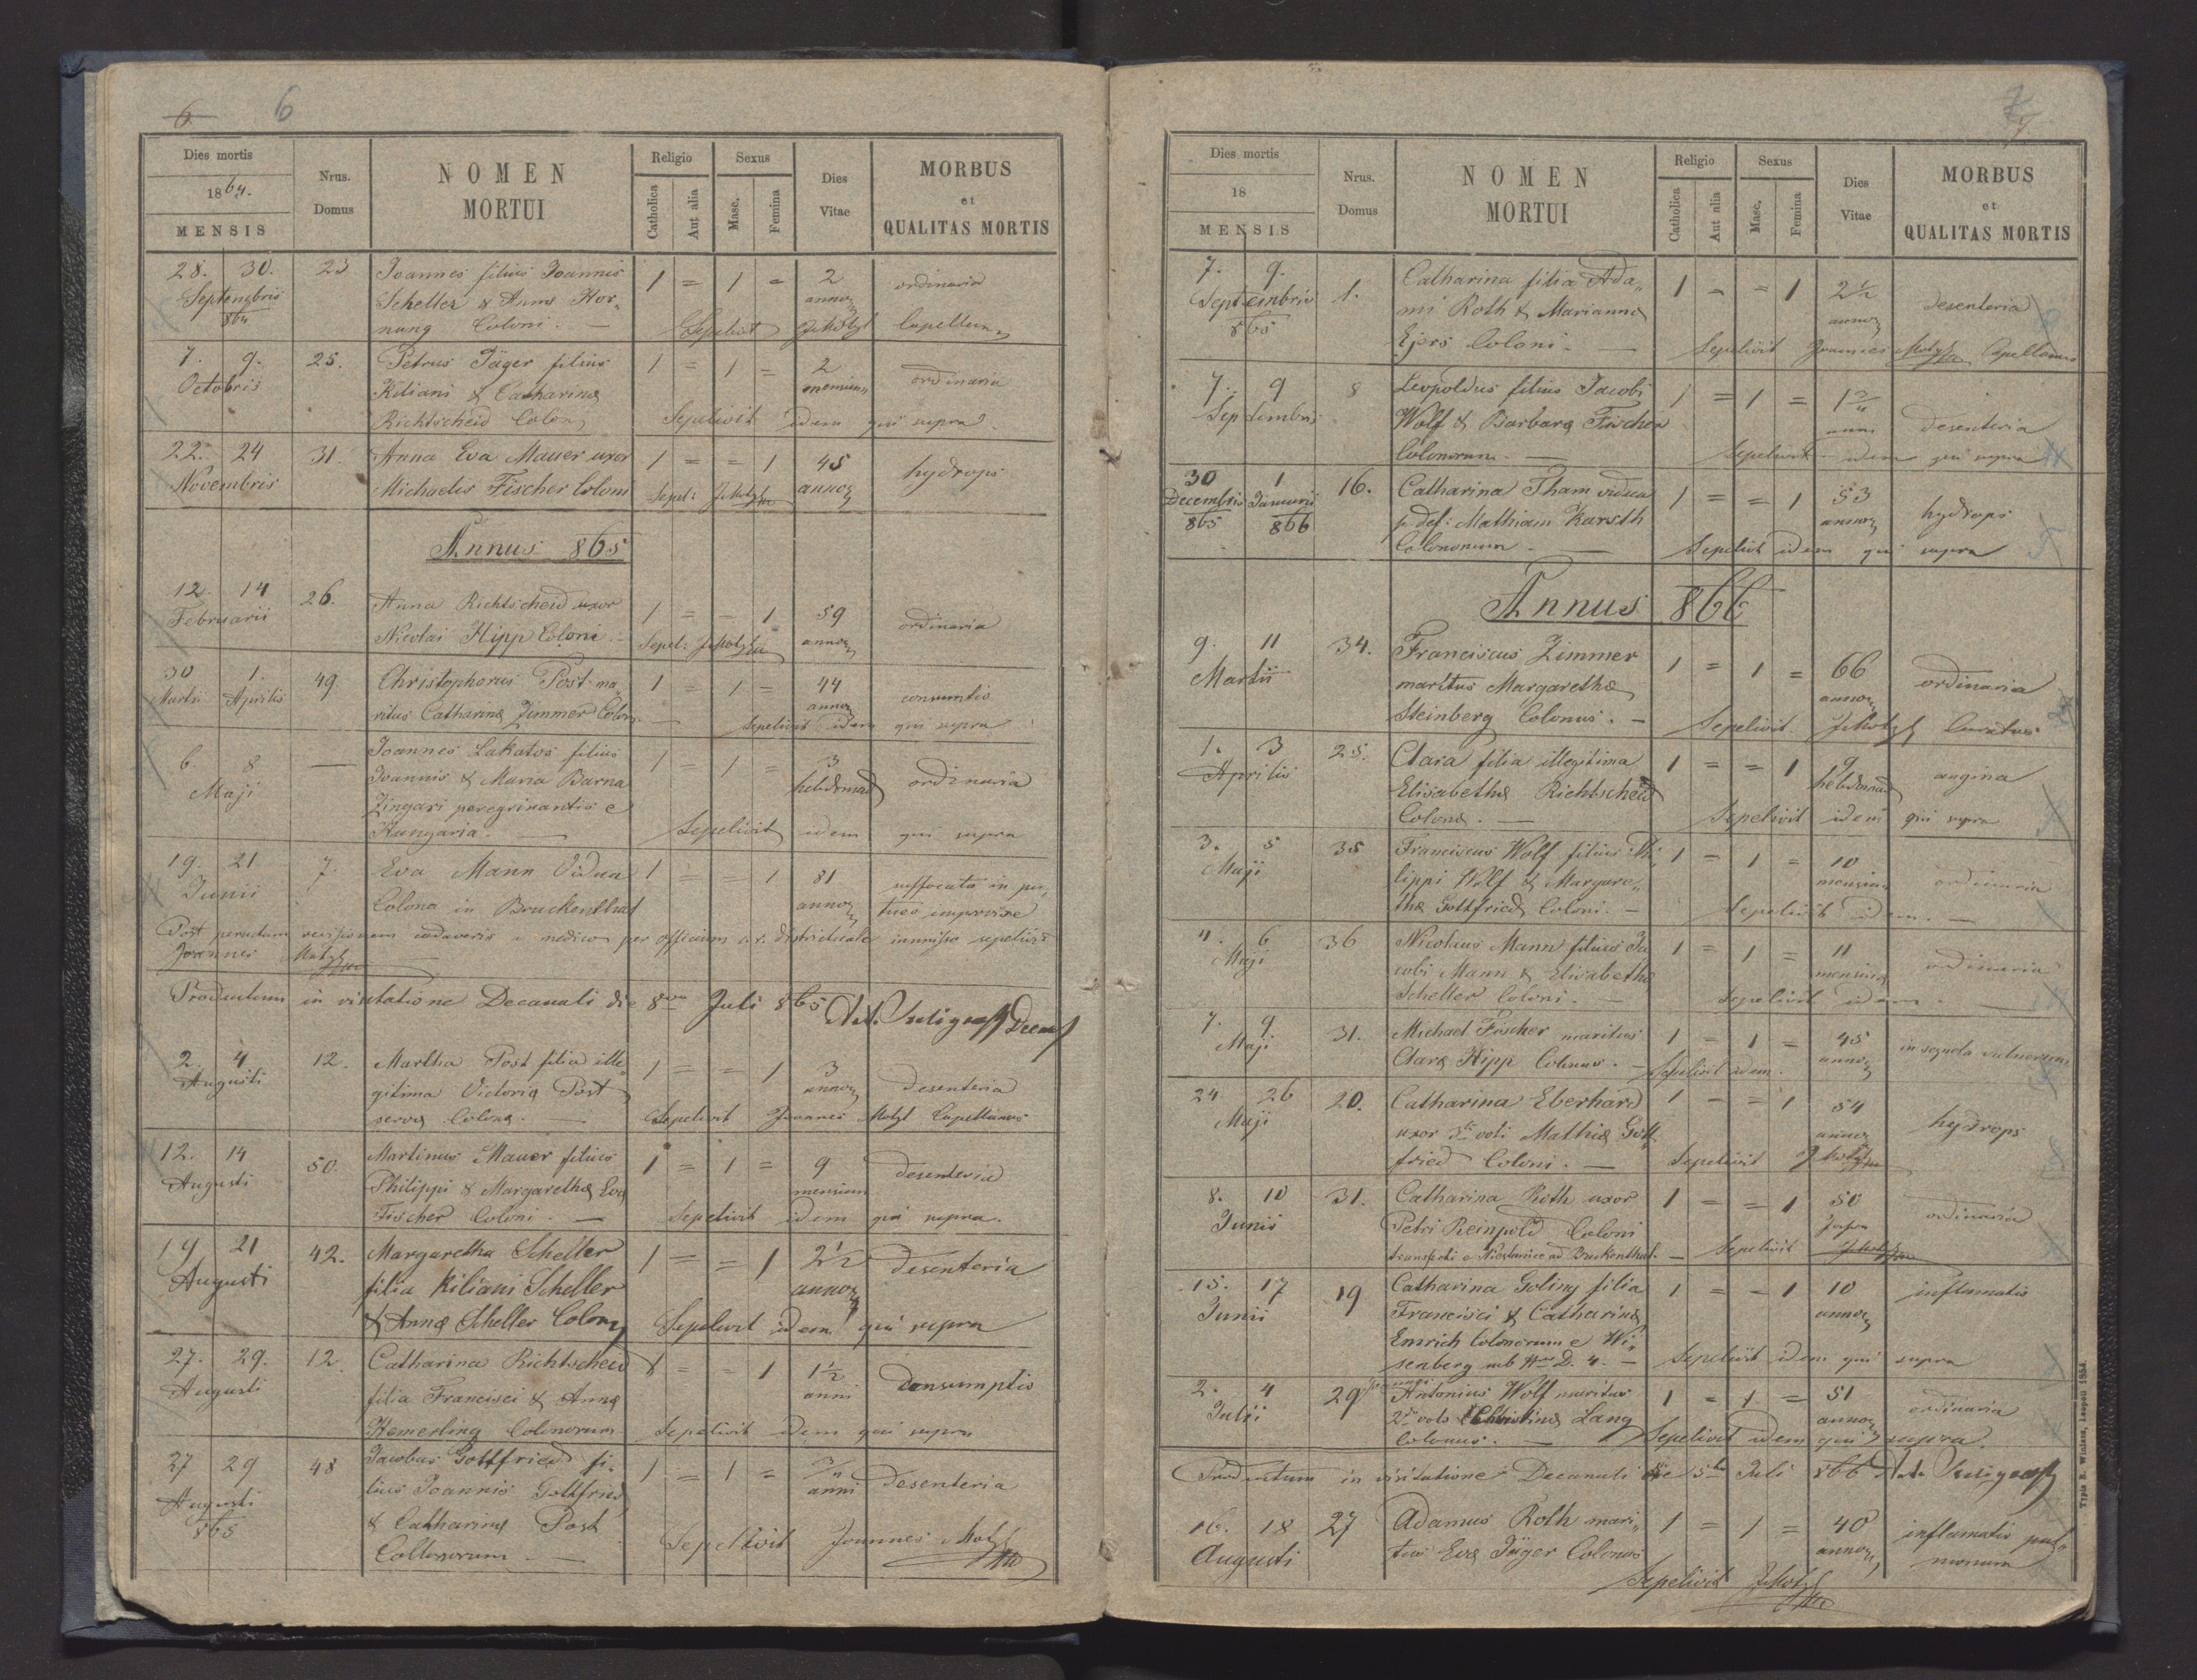 6 6
Dies mortis
1864.
MENSIS
Nrus. Domus
NOMEN MORTUI
Religio
Catholica Aut alia
Sexus
Masc. Femina
Dies Vitae
MORBUS et QUALITAS MORTIS
28. 30. 23 Joannes filius Joannis 1 = 1 = 2 ordinaria
Septembris Scheller & Anna Hor„ annor
864 nung Coloni. — Sepelivit JMotyl Capellanus
7. 9. 25. Petrus Jäger filius 1 = 1 = 2 ordinaria
Octobris Kiliani & Catharina mensium
Richtscheid Colon Sepelivit idem qui supra.
22. 24 31. Anna Eva Mauer uxor 1 = = 1 45 hydrops
Novembris Michaelis Fischer Coloni Sepel: JMotyl annor
Annus 865
12. 14 26. Anna Richtscheid uxor 1 = = 1 59 ordinaria
Februarii Nicolai Hipp Coloni. — Sepel: JMotyl annor
30 1. 49. Christophorus Post ma„ 1 = 1 = 44
Martii Aprilis ritus Catharina Zimmer Colon. — annor
Sepelivit idem qui supra
6. 8 — Joannes Lakatos filius 1 = 1 = 3 ordinaria
Maji Joannis & Maria Barna hebdomad
Zingari peregrinantis e
Hungaria. — Sepelivit idem qui supra
19. 21 7. Eva Mann Vidua 1 = = 1 81 suffocata in pu„
Junii Colona in Bruckenthal annor teo improvise
Post peractam revisionem cadaveris a medico per officium c.r. districtuale immisso sepelivit
Joannes Motyl
Productum in visitatione Decanali die 8va Juli 865
2. 4. 12. Martha Post filia ille„ 1 = = 1 3 desenteria
Augusti gitima Victoria Post annor
serva Colona. — Sepelivit Joannes Motyl Capellanus
12. 14 50. Martinus Mauer filius 1 = 1 = 9 desenteria
Augusti Philippi & Margaretha Eva mensium
Fischer Coloni. — Sepelivit idem qui supra.
19 21 42. Margaretha Scheller 1 = = 1 2½ desenteria
Augusti filia Kiliani Scheller annor
& Anna Scheller Colon Sepelivit idem qui supra
27. 29. 12 Catharina Richtscheid 1 = = 1 1½ Consumptio
Augusti filia Francisci & Anna anni
Hemerling Colonorum Sepelivit idem qui supra
27 29 48 Jacobus Gottfried fi„ 1 = 1 = ¾ desenteria
Augusti lius Joannis Gottfried anni
865 & Catharina Post
Collonorum. — Sepelivit Joannes Motyl
7
Dies mortis
18
MENSIS
Nrus. Domus
NOMEN MORTUI
Religio
Catholica Aut alia
Sexus
Masc. Femina
Dies Vitae
MORBUS et QUALITAS MORTIS
7. 9. 1. Catharina filia Ada„ 1 = = 1 2½ desenteria
Septembris mi Roth & Marianna annor
865 Ejers Coloni. — Sepelivit Joannes Motyl Capellanus
7. 9 8 Leopoldus filius Jacobi 1 = 1 = 1¾ desenteria
Septembris Wolf & Barbara Fischer anni
Colonorum. — Sepelivit idem qui supra
30 1 16. Catharina Tham vidua 1 = = 1 53 hydrops
Decembris Januarii p. def: Mathiam Kursth annor
865 866 Colonorum. — Sepelivit idem qui supra
Annus 866
9. 11 34. Franciscus Zimmer 1 = 1 = 66 ordinaria
Martii maritus Margaretha annor
Steinberg Colonus. — Sepelivit JMotyl Curatus
1. 3 25. Clara filia illegitima 1 = = 1 9 angina
Aprilis Elisabetha Richtscheid hebdomad
Colona. — Sepelivit idem qui supra
3. 5 35 Franciscus Wolf filius Phi„ 1 = 1 = 10 ordinaria
Maji lippi Wolf & Margare„ mensium
tha Gottfried Coloni. — Sepelivit idem. —
4. 6 36 Nicolaus Mann filius Ja 1 = 1 = 11 ordinaria
Maji cobi Mann & Elisabetha mensium
Scheller Coloni. — Sepelivit idem. —
7. 9. 31. Michael Fischer maritus 1 = 1 = 45 in sequela vulnerum
Maji Clara Hipp Colonus. — Sepelivit idem. annor
24 26 20. Catharina Eberhard 1 = = 1 54 hydrops
Maji uxor 3ti voti Mathia Gott annor
fried Coloni. — Sepelivit JMotyl
8. 10 31. Catharina Roth uxor 1 = = 1 50 ordinaria
Junii Petri Reinpold Coloni
ad Bruckenthal. — Sepelivit JMotyl
15. 17 19 Catharina Goling filia 1 = = 1 10 inflamatio
Junii Francisci & Catharina annor
Emrich Colonorum e Wi„
senberg sub Nro D. 4. — Sepelivit idem qui supra
2. 4 29 Antonius Wolf maritus 1 = 1 = 51 ordinaria
Julii 2do voto Christina Lang annor
Colonus. — Sepelivit idem qui supra.
Productum in visitatione Decanali die 5ta Juli 866
16. 18 27 Adamus Roth mari„ 1 = 1 = 40 inflamatio pul„
Augusti tus Eva Jäger Colonus annor monum
Sepelivit JMotyl
Typis B. Winiarz, Leopoli 1854.